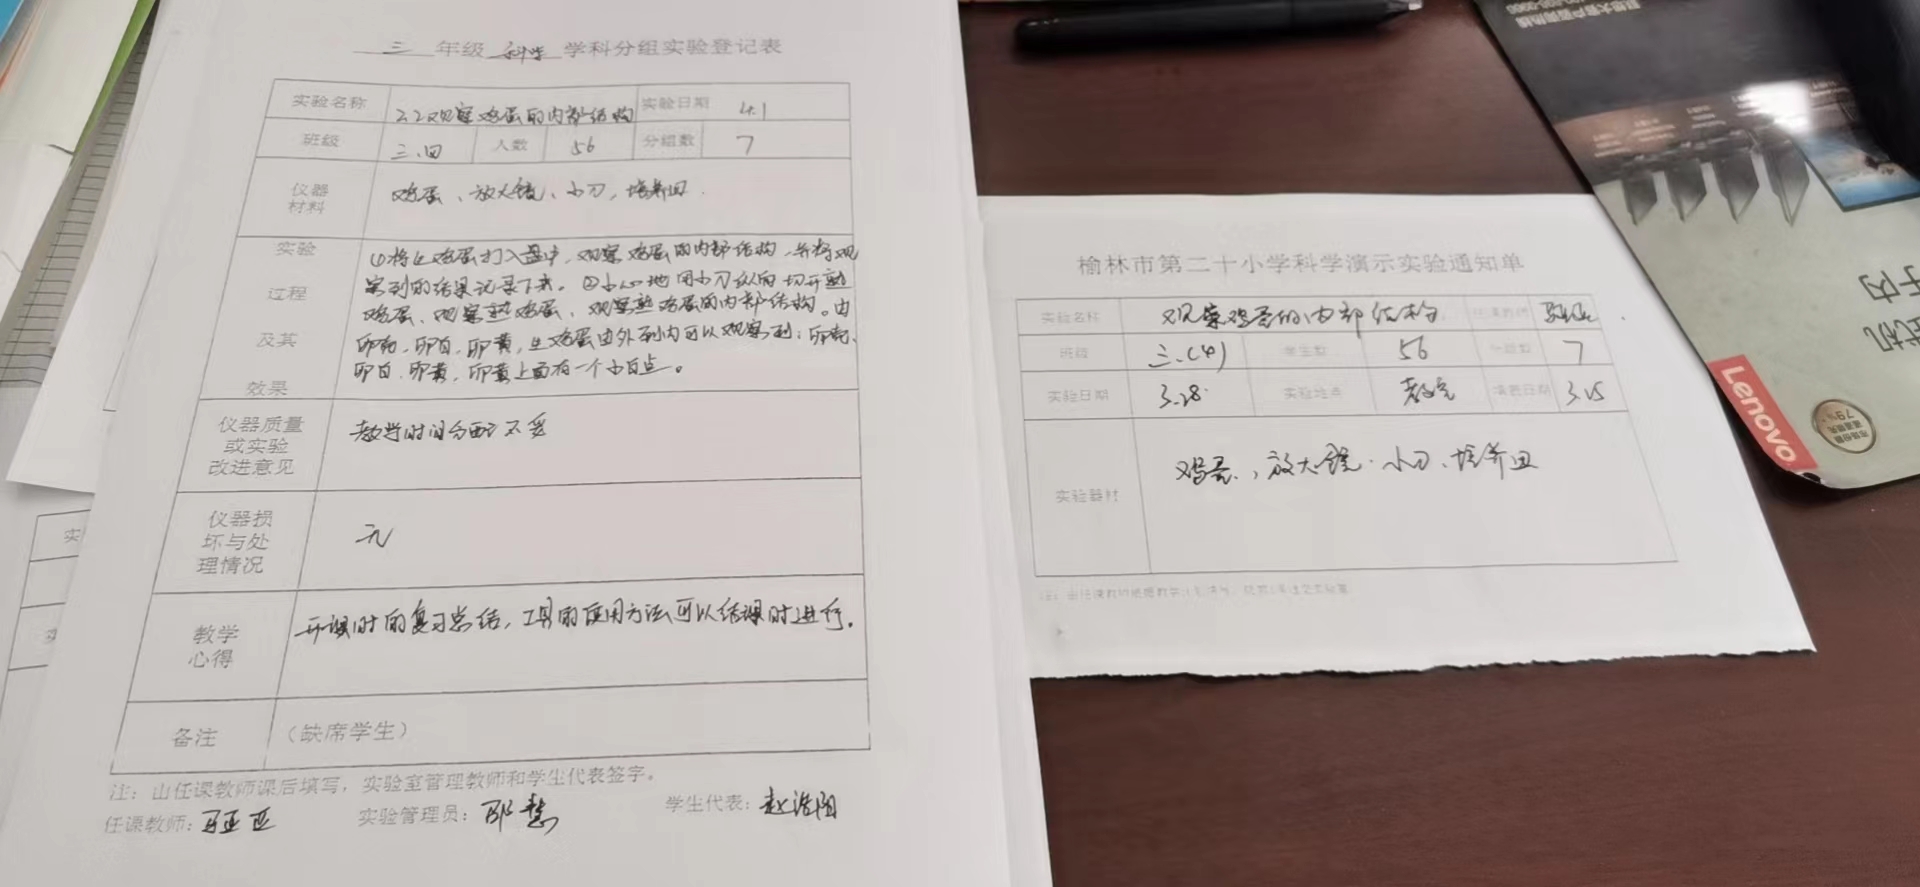 三 年级 科学 学科分组实验登记表
实验名称 2.2观察鸡蛋的内部结构 实验日期 4.1
班级 三.四 人数 56 分组数 7
仪器材料 鸡蛋、放大镜、小刀、培养皿.
实验过程及其效果
①将生鸡蛋打入盘中,观察鸡蛋的内部结构,并将观
察到的结果记录下来。②小心地用小刀纵向切开熟
鸡蛋、观察熟鸡蛋、观察熟鸡蛋的内部结构。由
卵壳、卵白、卵黄,生鸡蛋由外到内可以观察到:卵壳、
卵白、卵黄,卵黄上面有一个小白点。
仪器质量或实验改进意见 教学时间分配不妥
仪器损坏与处理情况 无
教学心得 开课时的复习总结,工具的使用方法可以结课时进行.
备注 (缺席学生)
注:由任课教师课后填写,实验室管理教师和学生代表签字。
任课教师:马亚亚 实验管理员:邵慧 学生代表:赵浩阳
榆林市第二十小学科学演示实验通知单
实验名称 观察鸡蛋的内部结构
班级 三.(4) 学生数 56 分组数 7
实验日期 3.28 实验地点 教室 填表日期 3.25
实验器材 鸡蛋、放大镜、小刀、培养皿
Lenovo
79%